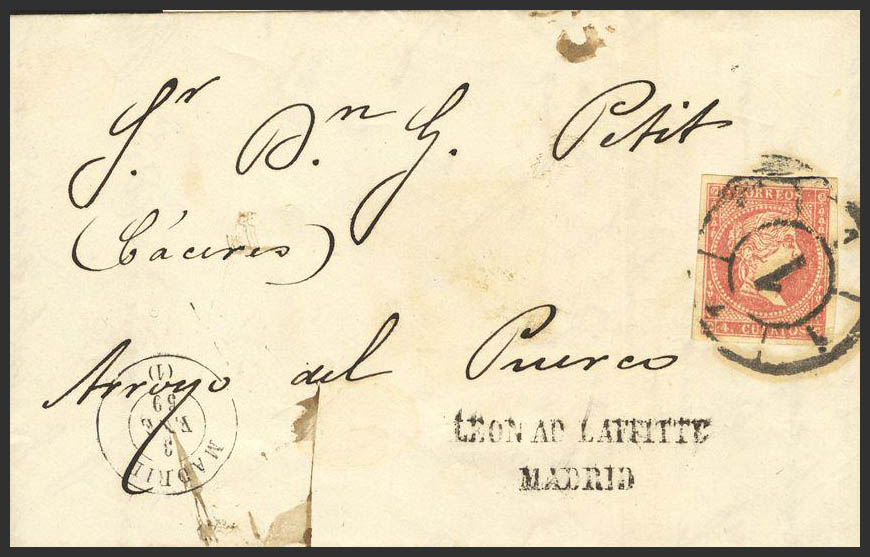 Sr Dn G. Petit
(Cáceres)
Arroyo del Puerco
CORREOS
4. CUARTOS
1
LEON AD LAFFITTE
MADRID
MADRID
3
ENE
59
(1)